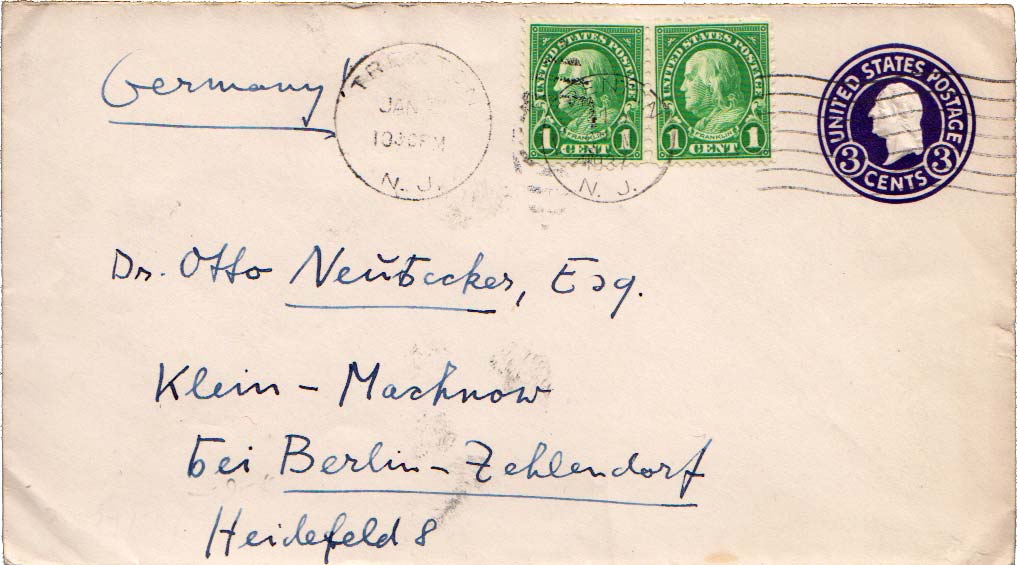 Germany
TRENTON
JAN
1030PM
N. J.
UNITED STATES POSTAGE
FRANKLIN
1 CENT 1
UNITED STATES POSTAGE
FRANKLIN
1 CENT 1
1937
N. J.
UNITED STATES POSTAGE
3 CENTS 3
Dr. Otto Neubecker, Esq.
Klein-Machnow
bei Berlin-Zehlendorf
Heidefeld 8